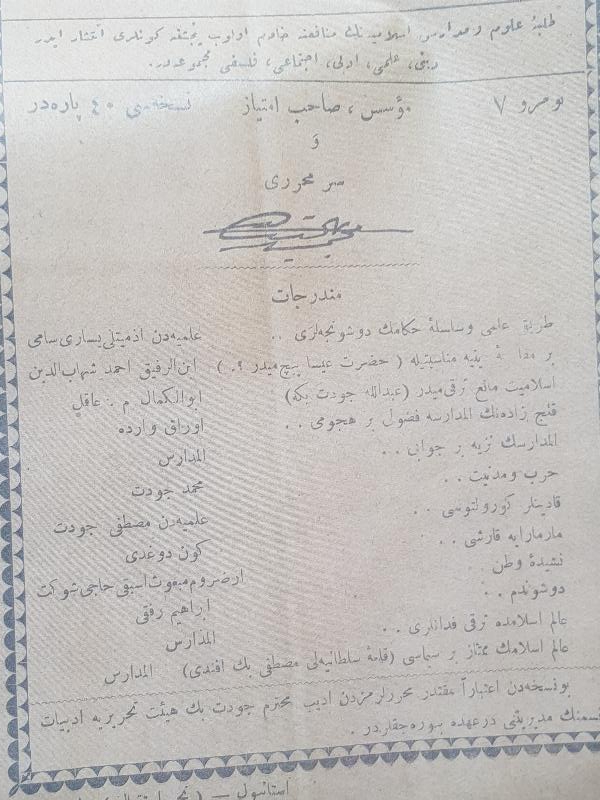 طلبهٔ علوم و مدارس اسلامیه‌نك منافعنه خادم اولوب پنجشنبه كونلری انتشار ایدر
دینی، علمی، ادبی، اجتماعی، فلسفی مجموعه‌در.
نومرو ۷
مؤسس، صاحب امتیاز
نسخه‌سی ٤٠ پاره‌در
و
سر محرری
مندرجات
طریق علمی وساسلهٔ حكامك دوشونجه‌لری . . علمیه‌دن ازمیتلی یساری سامی
بر مقا ـهٔ ینیه مناسبتیله ( حضرت عیسا پیچ میدر ؟. ) ابن الرفیق احمد شهاب الدین
اسلامیت مانع ترقی میدر (عبدالله جودت بكه) ابوالكمال م . عاقل
قلج زاده‌نك المدارسه فضول بر هجومی . . اوراق وارده
المدارسك نزیه بر جوابی . . المدارس
حرب و مدنیت . . محمد جودت
قادینلر كورولتوسی . . علمیه‌دن مصطفی جودت
مارمارایه قارشی . . كون دوغدی
نشیدهٔ وطن ارضروم مبعوث اسبقی حاجی شوكت
دوشوندم . . ابراهیم رفقی
عالم اسلامده ترقی فدانلری . . المدارس
عالم اسلامك ممتاز بر سیاسی (قلعهٔ سلطانیه‌لی مصطفی بك افندی) المدارس
بو نسخه‌دن اعتباراً مقتدر محررلرمزدن ادیب محترم جودت بك هیئت تحریریه ادبیات
قسمنك مدیریتنی درعهده بیوره‌جقلردر .
استانبول —